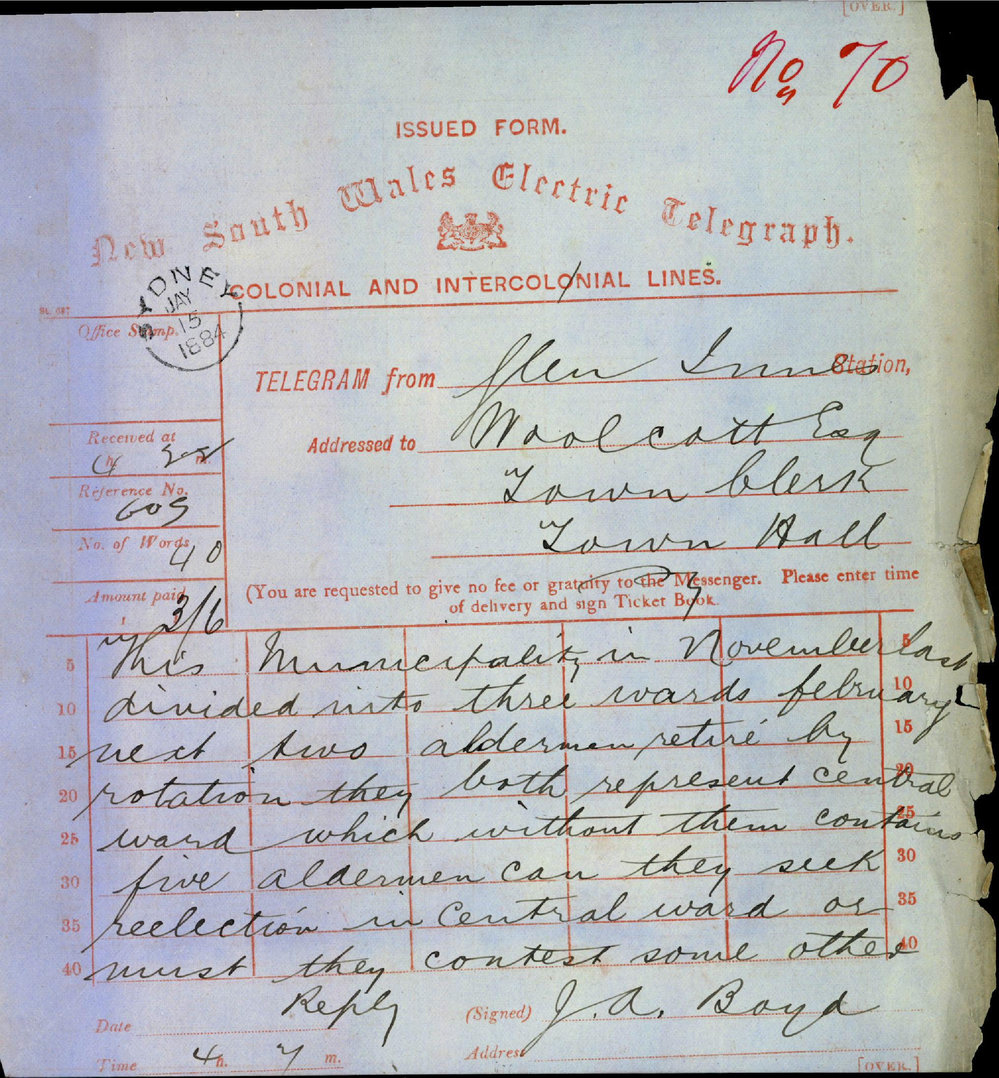 [OVER.]
No 70
ISSUED FORM.
New South Wales Electric Telegraph.
COLONIAL AND INTERCOLONIAL LINES.
SYDNEY
JAY
15
1884
Office Stamp.
TELEGRAM from Glen Innes Station,
Received at
4 h. m.
Addressed to Woolcott Esq
Reference No.
605
Town Clerk
No. of Words
40
Town Hall
Amount paid
3/6
(You are requested to give no fee or gratuity to the Messenger. Please enter time
of delivery and sign Ticket Book.
5 This Municipality in November last 5
10 divided into three wards february 10
15 next two aldermen retire by 15
20 rotation they both represent central 20
25 ward which without them contains 25
30 five aldermen can they seek 30
35 reelection in central ward or 35
40 must they contest some other 40
Reply
Date
(Signed) J. A. Boyd
Time 4 h. 7 m.
Address
[OVER.]